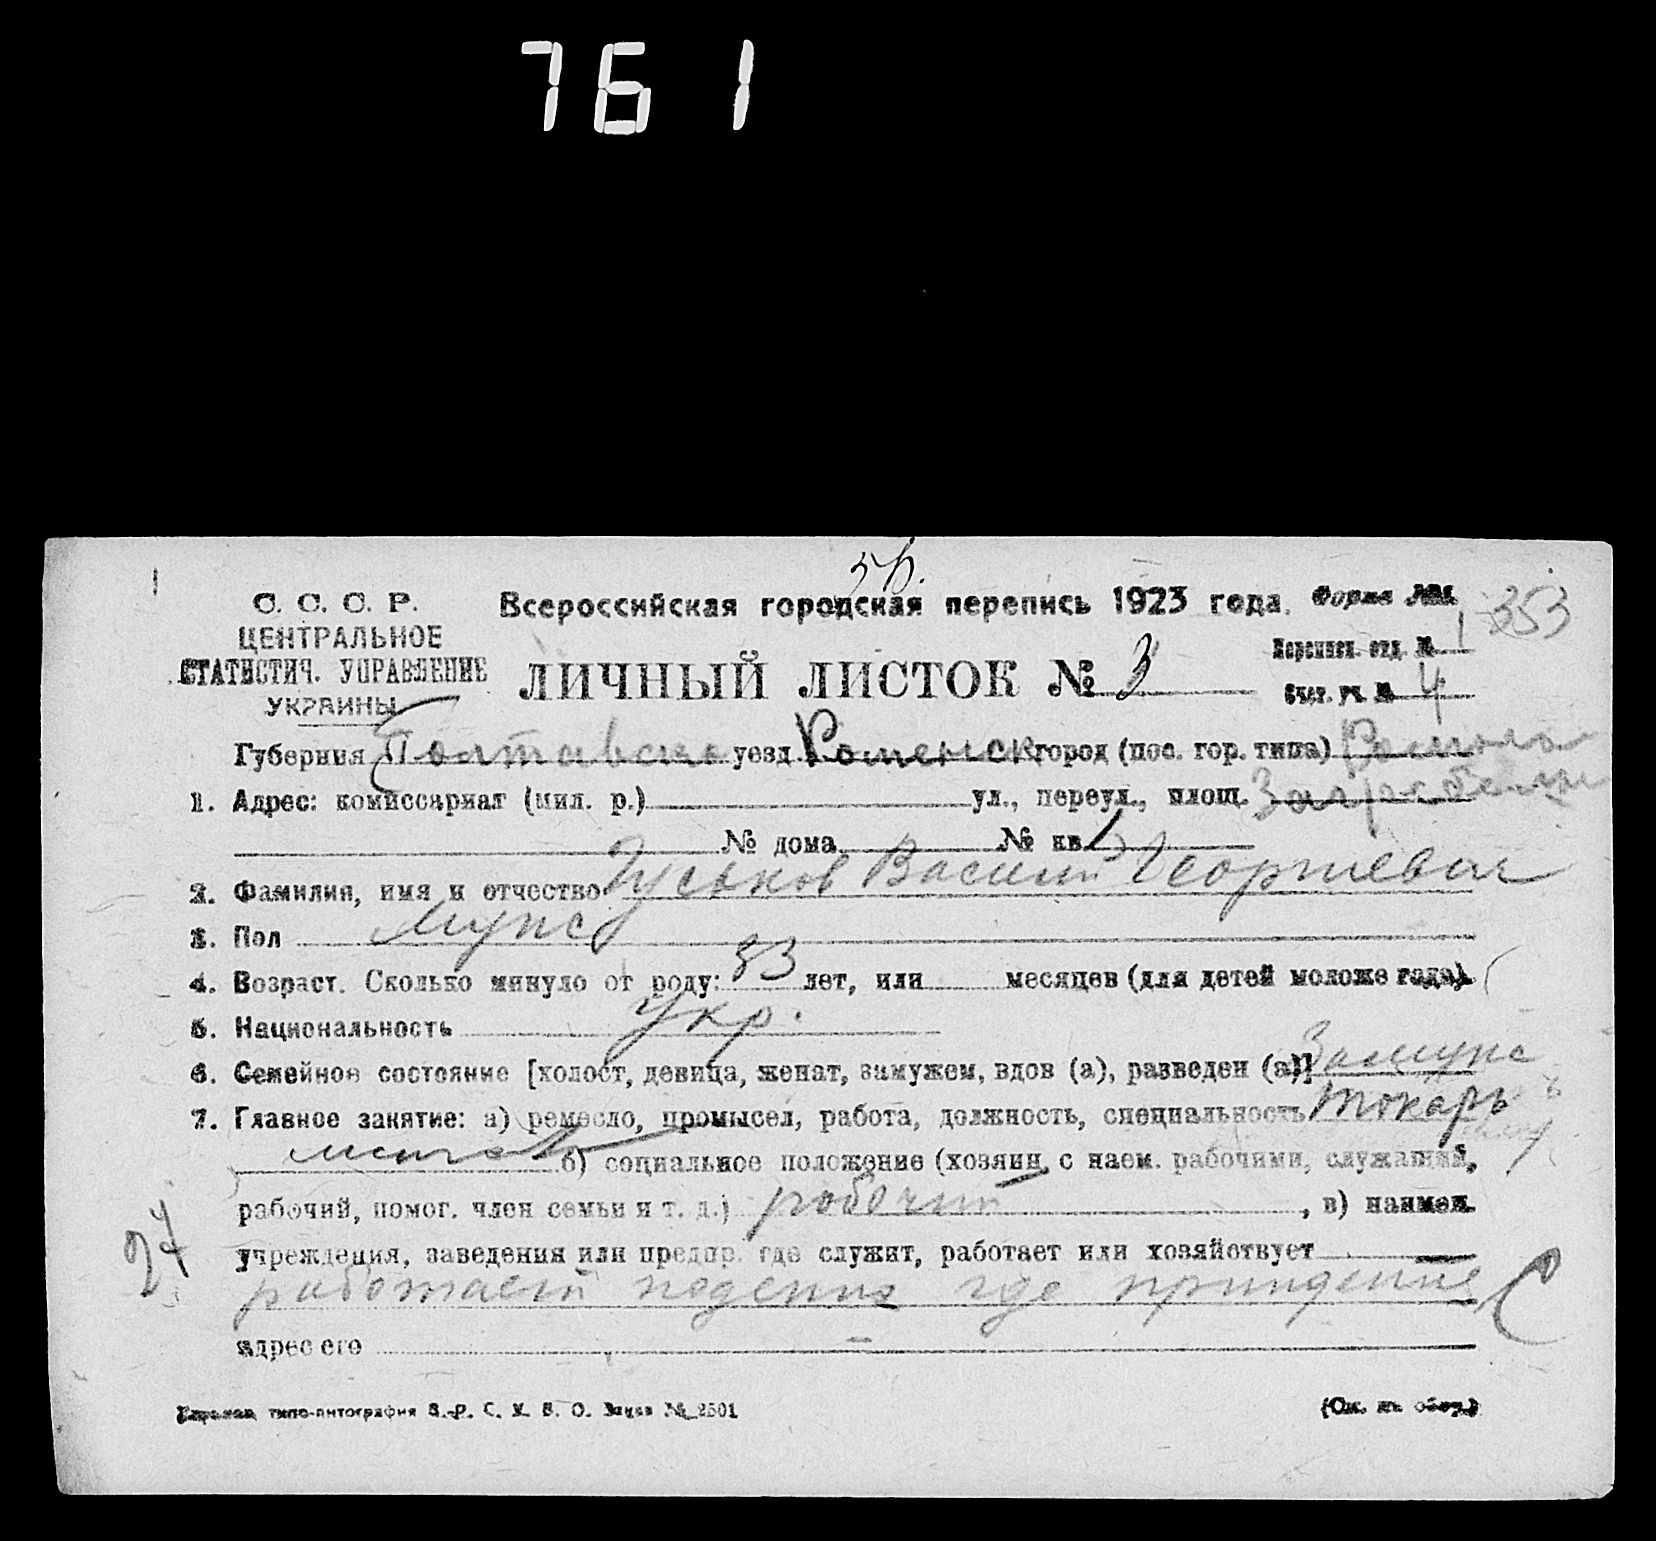 761
56.
С. С. С. Р.
ЦЕНТРАЛЬНОЕ
СТАТИСТИЧ. УПРАВЛЕНИЕ
УКРАИНЫ
Всероссийская городская перепись 1923 года. Форма №1.
353
ЛИЧНЫЙ ЛИСТОК № 3
Переписн. отд. № 1
Счет. уч. № 4
Губерния Полтавская уезд Роменск город (пос. гор. типа)
1. Адрес: комиссариат (мил. р.) ул., переул., площ.
№ дома № кв.
2. Фамилия, имя и отчество Гуськов Василий Георгиевич
3. Пол Мужс
4. Возраст. Сколько минуло от роду: 83 лет, или месяцев (для детей моложе года).
5. Национальность Укр.
6. Семейное состояние [холост, девица, женат, замужем, вдов (а), разведен (а)] Замужс
7. Главное занятие: а) ремесло, промысел, работа, должность, специальность токарь
б) социальное положение (хозяин с наем. рабочими, служащий,
рабочий, помог. член семьи и т. д.) рабочий , в) наимен.
учреждения, заведения или предпр. где служит, работает или хозяйствует
работает поденно где
адрес его —
27
типо-литография З.-Р. С. Х. В. О. Заказ № 2501
(См. на обор.)